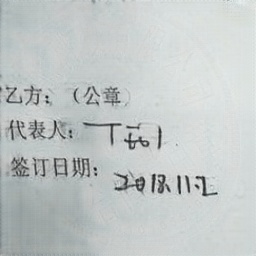 乙方：（公章
代表人：
签订日期：2018.11.2